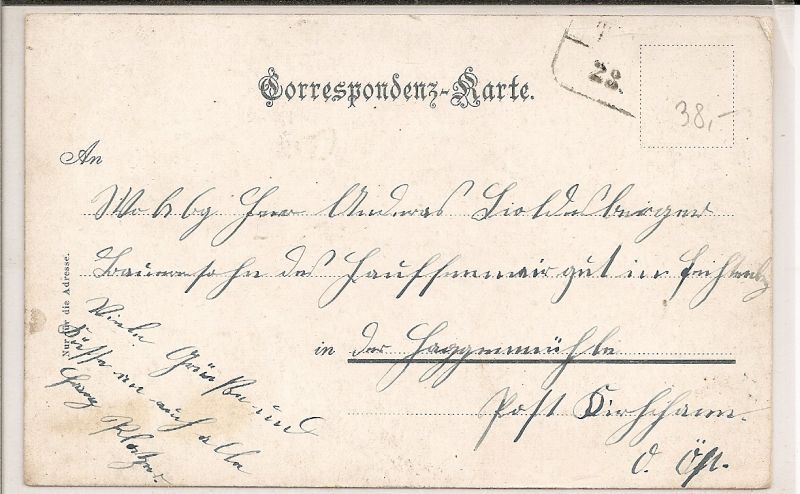 Correspondenz-Karte.
23.
38,-
An
Wohlbg Herr Andreas
Bauernsohn des gut in
in der Haggenmühle
Post Kirchham.
O. Öst.
Nur für die Adresse.
Viele Grüße und
Küsse an euch alle
Georg